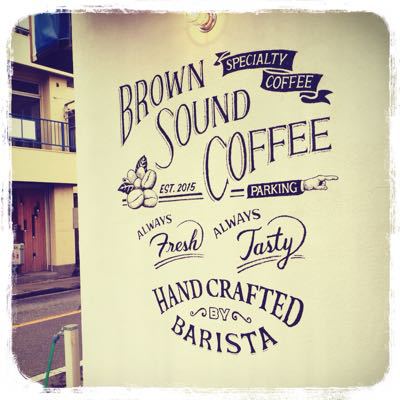 BROWN
SOUND
COFFEE
SPECIALTY
COFFEE
EST. 2015
PARKING
ALWAYS
Fresh
ALWAYS
Tasty
HAND CRAFTED
BY
BARISTA